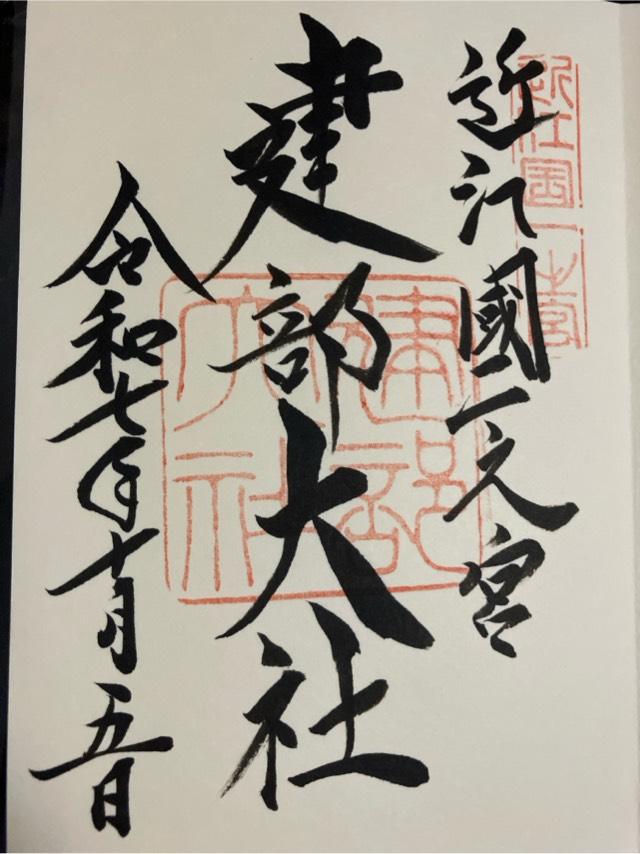 近江國一之宮
建部大社
令和七年十月五日
近江国一之宮
建部大社